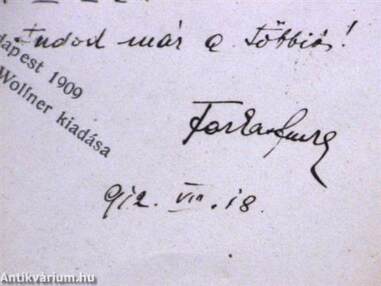 Tudod már a többiés!
dapest 1909
Wolfner kiadása
Farkas Imre
912. VIII. 18.
Antikvárium.hu